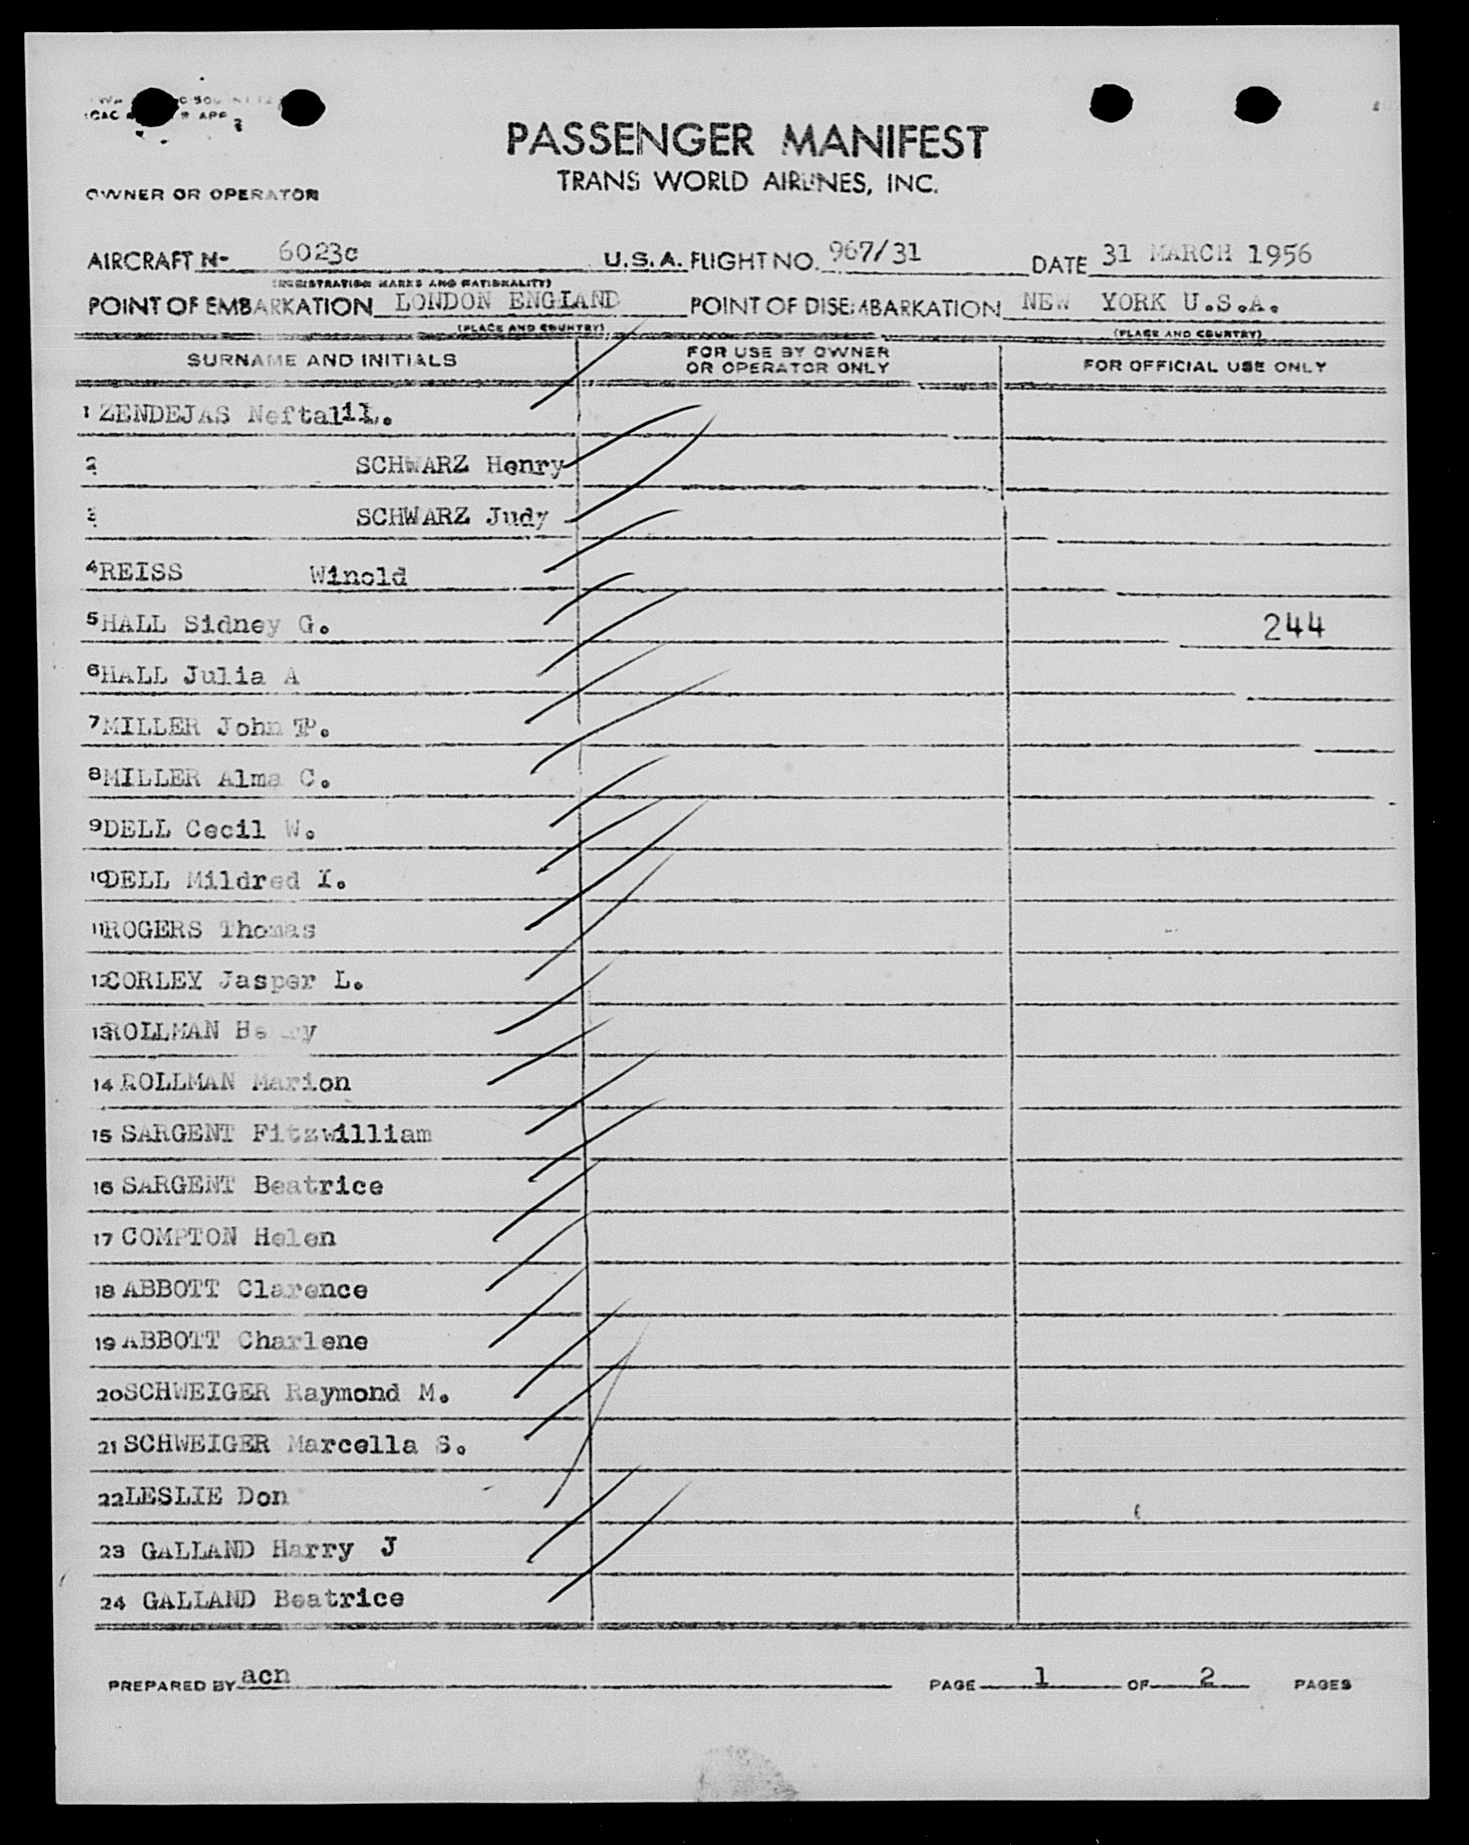 PASSENGER MANIFEST
TRANS WORLD AIRLINES, INC.
OWNER OR OPERATOR
AIRCRAFT N- 6023c U.S.A. FLIGHT NO. 967/31 DATE 31 MARCH 1956
(REGISTRATION MARKS AND NATIONALITY)
POINT OF EMBARKATION LONDON ENGLAND POINT OF DISEMBARKATION NEW YORK U.S.A.
(PLACE AND COUNTRY) (PLACE AND COUNTRY)
SURNAME AND INITIALS FOR USE BY OWNER OR OPERATOR ONLY FOR OFFICIAL USE ONLY
1 ZENDEJAS Neftali L.
2 SCHWARZ Henry
3 SCHWARZ Judy
4 REISS Winold
5 HALL Sidney G. 244
6 HALL Julia A
7 MILLER John P.
8 MILLER Alma C.
9 DELL Cecil W.
10 DELL Mildred I.
11 ROGERS Thomas
12 CORLEY Jasper L.
13 ROLLMAN
14 ROLLMAN Marion
15 SARGENT Fitzwilliam
16 SARGENT Beatrice
17 COMPTON Helen
18 ABBOTT Clarence
19 ABBOTT Charlene
20 SCHWEIGER Raymond M.
21 SCHWEIGER Marcella S.
22 LESLIE Don
23 GALLAND Harry J
24 GALLAND Beatrice
PREPARED BY acn PAGE 1 OF 2 PAGES